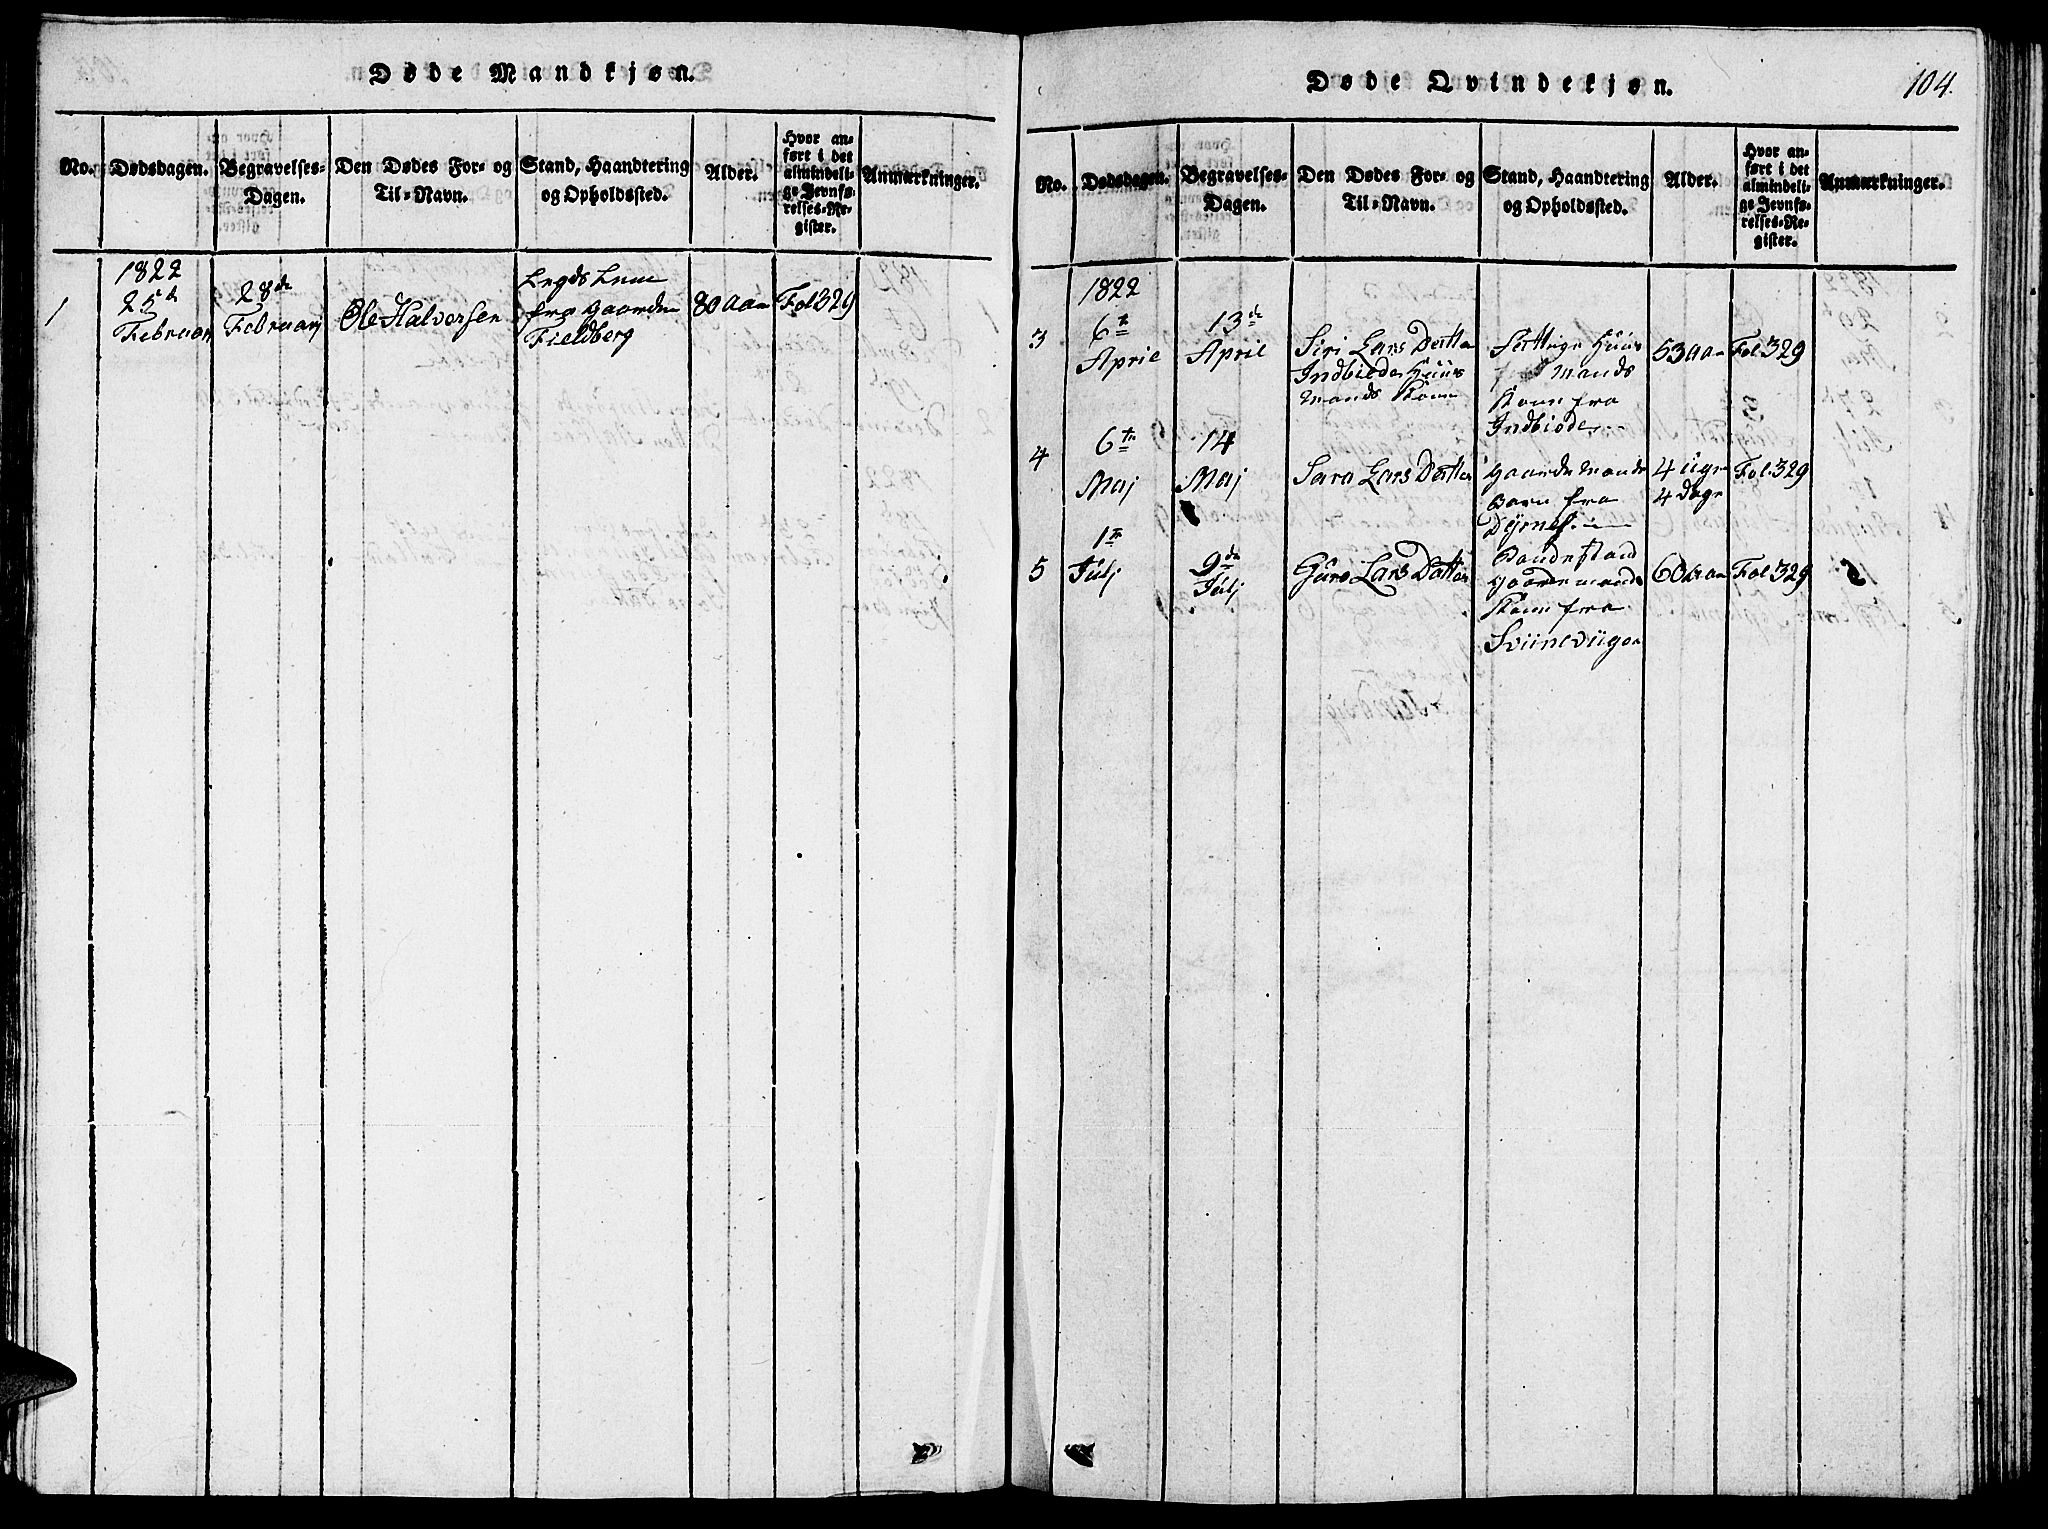 Døde Mandkjøn.
No. Dødsdagen. Begravelses-Dagen. Den Dødes For- og Til-Navn. Stand, Haandtering og Opholdssted. Alder. Hvor anført i det almindelige Jevnførelses-Register. Anmærkninger.
1822
1 25de Februari 28de Februari Ole Halvorsen Legds Lem 80 aar Fol 329
fra gaarden
Fieldberg
Døde Qvindekjøn.
104.
No. Dødsdagen. Begravelses-Dagen. Den Dødes For- og Til-Navn. Stand, Haandtering og Opholdssted. Alder. Hvor anført i det almindelige Jevnførelses-Register. Anmærkninger.
1822
3 6te April 13de April Siri Lars Datter Huus 53 aar Fol 329
Indbiode Huus mands
mands Kone Kone fra
Indbiode
4 6te Maj 14 Maj Sara Lars Datter gaardmands 4 uger Fol 329
Barn fra 4 dage
Dyrnes.
5 1te Julj 9de Julj Guro Lars Datter Bondestand 60 aar Fol 329
gaardmands
Kone fra
Sviineviigen